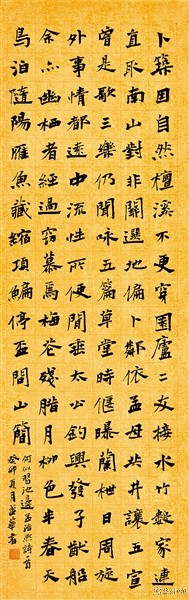 卜築因自然檀溪不更穿園廬二友接水竹數家連
直取南山對非關選地偏卜鄰依孟母共井讓王宣
曾是歌三樂仍聞詠五篇草堂時偃曝蘭枻日周旋
外事情都遠中流性所便閒垂太公釣興發子猷船
余亦幽栖者經過竊慕焉梅花殘臘月柳色半春天
鳥泊隨陽雁魚藏縮項鯿停盃問山簡
何似習池邊孟浩然詩一首
癸卯月書